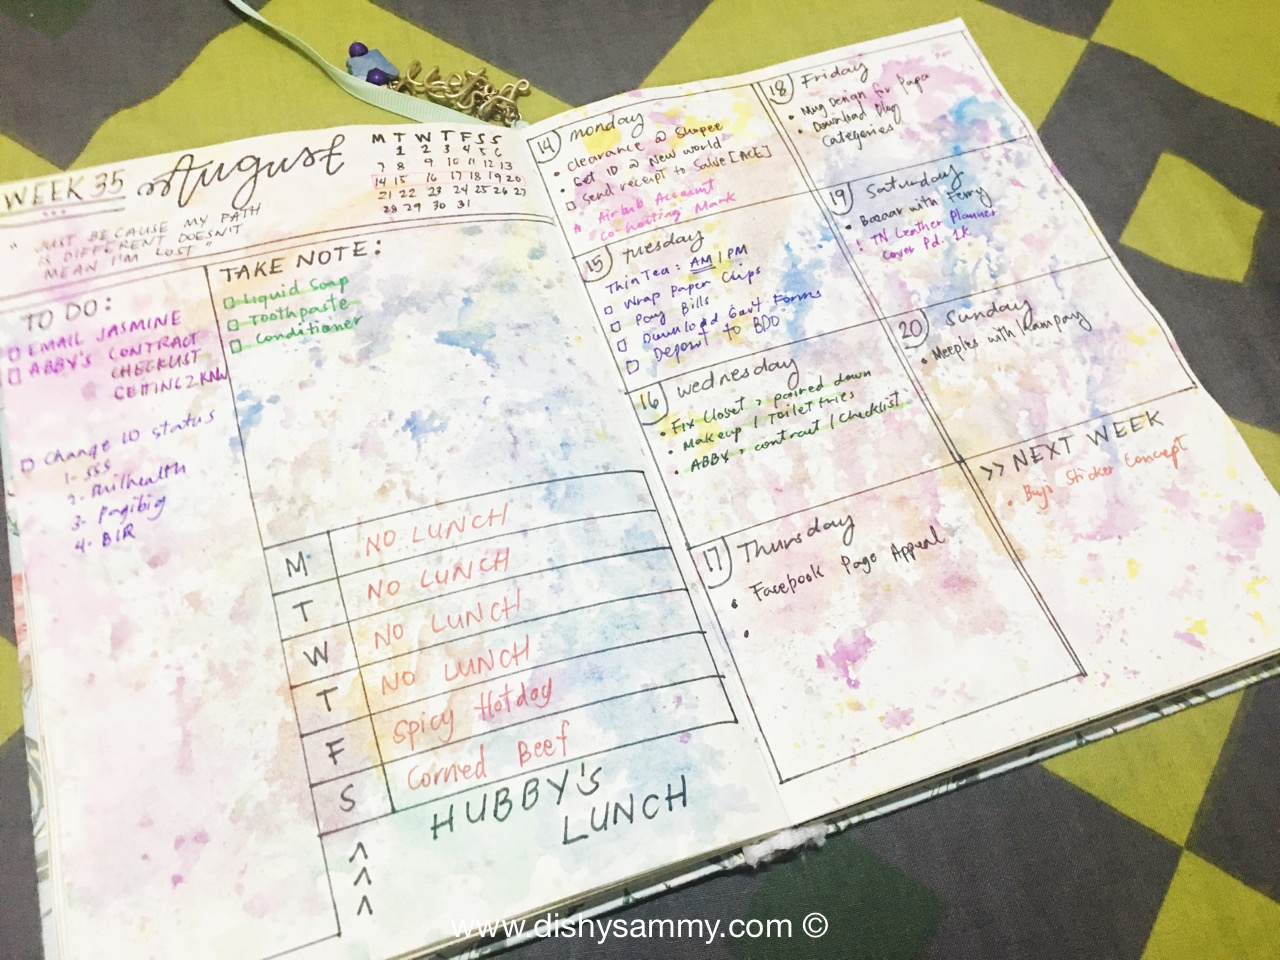 WEEK 35
August
M T W T F S S
1 2 3 4 5 6
7 8 9 10 11 12 13
14 15 16 17 18 19 20
21 22 23 24 25 26 27
28 29 30 31
"JUST BECAUSE MY PATH
IS DIFFERENT DOESN'T
MEAN I'M LOST"
TO DO:
EMAIL JASMINE
ABBY'S CONTRACT
CHECKLIST
GETTING 2 KNW
Change ID status
1- SSS
2- Philhealth
3- Pagibig
4- BIR
TAKE NOTE:
Liquid Soap
Toothpaste
Conditioner
M NO LUNCH
T NO LUNCH
W NO LUNCH
T NO LUNCH
F Spicy Hotdog
S Corned Beef
HUBBY's
LUNCH
14 monday
• Clearance @ Shopee
• Get ID @ New world
Send receipt to Salve [ACE]
* Airbnb Account
Co-hosting Mark
15 tuesday
ThinTea: AM | PM
Wrap Paper Clips
Pay Bills
Download Govt Forms
Deposit to BDO
16 wednesday
• Fix Closet > paired down
• Makeup | Toiletries
• ABBY > contract | checklist
17 Thursday
• Facebook Page Appeal
•
18 Friday
• Mug Design for Papa
• Download Blog
Categories
19 Saturday
• Bazaar with Ferry
! TN Leather Planner
Cover Pd. 1k
20 Sunday
• Meeples with Rampay
>> NEXT WEEK
• Buj's Sticker Concept
www.dishysammy.com ©